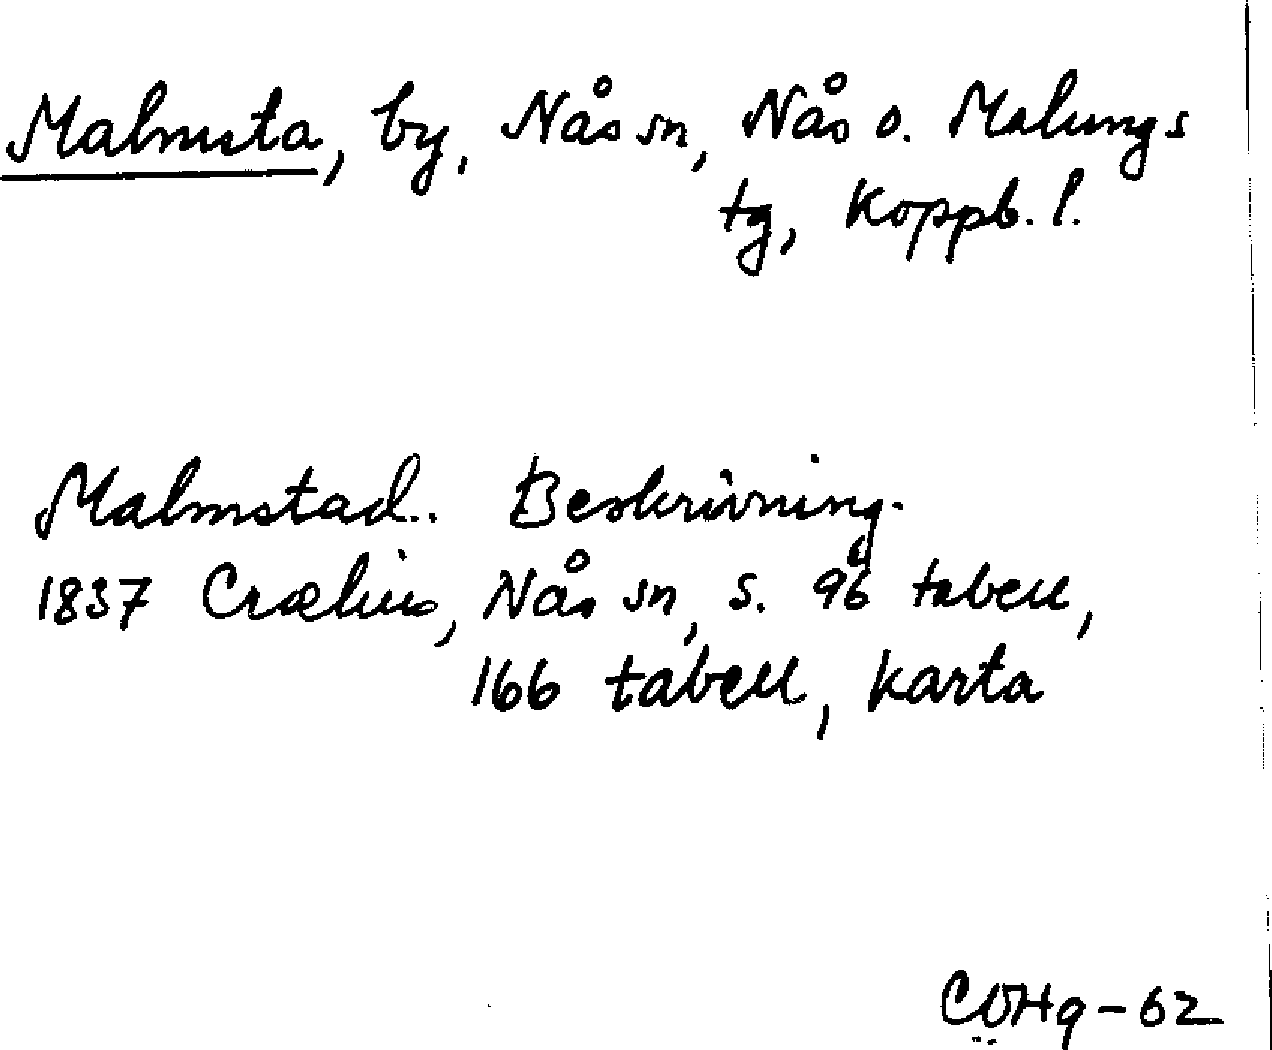 Malmsta, by, Nås sn, Nås o. Malungs
tg, Koppb. l.
Malmstad.. Beskrivning.
1837 Crælius, Nås sn, s. 96 tabell,
166 tabell, karta